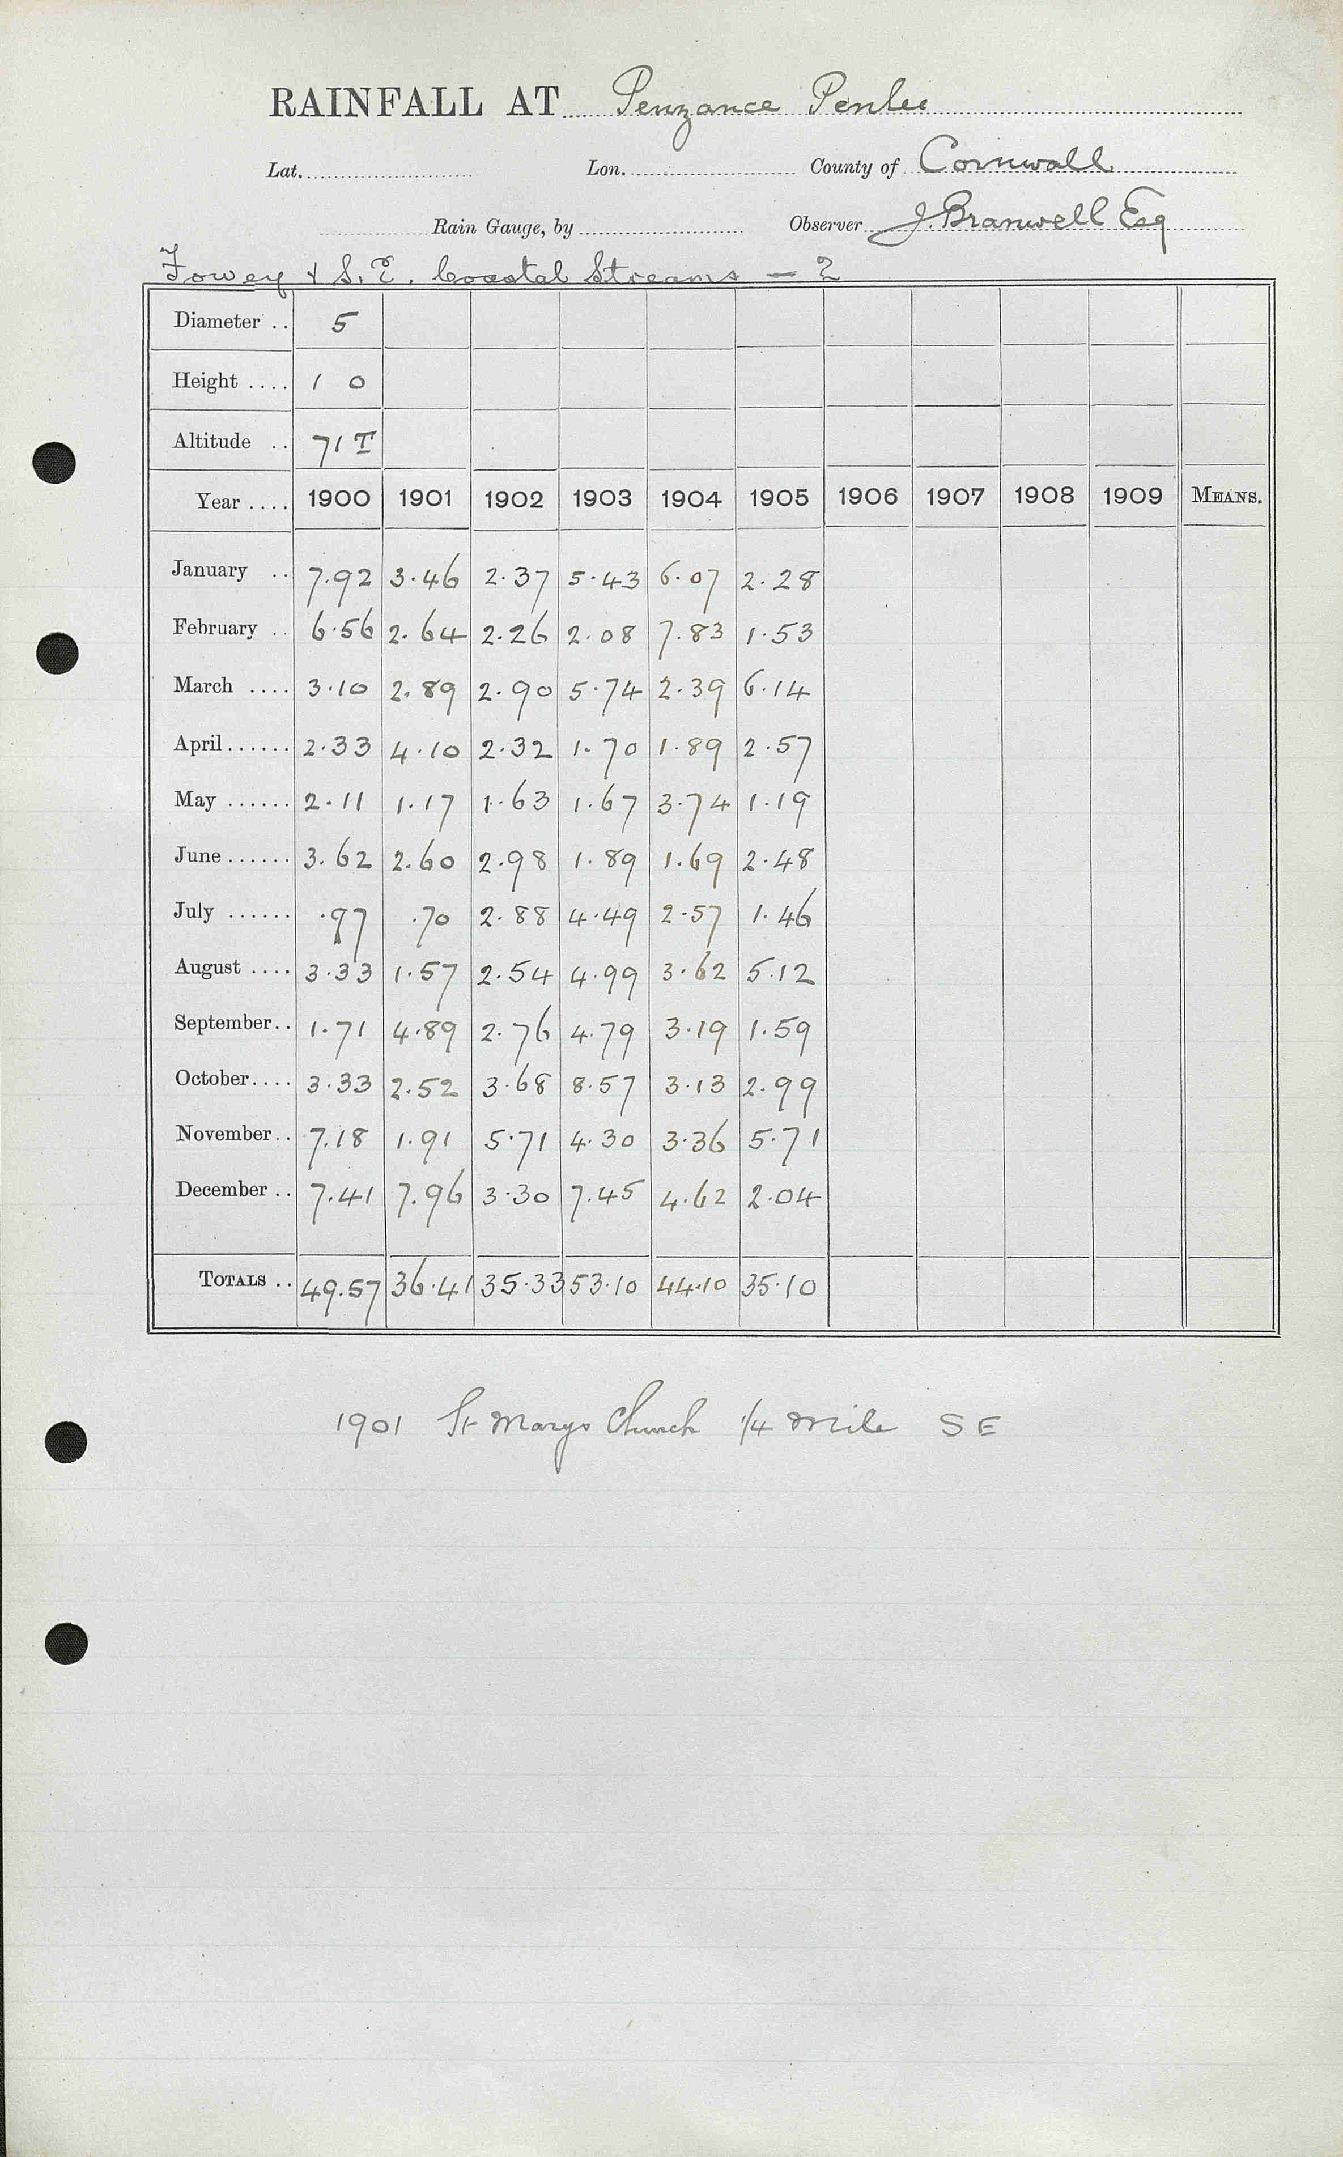 RAINFALL AT Penzance Penlee
Lat. Lon. County of Cornwall
Rain Gauge, by Observer J. Branwell Esq
Fowey & S.E. Coastal Streams — 2
Diameter .. 5
Height .... 1 0
Altitude .. 71 T
Year .... 1900 1901 1902 1903 1904 1905 1906 1907 1908 1909 MEANS.
January .. 7.92 3.46 2.37 5.43 6.07 2.28
February .. 6.56 2.64 2.26 2.08 7.83 1.53
March .... 3.10 2.89 2.90 5.74 2.39 6.14
April...... 2.33 4.10 2.32 1.70 1.89 2.57
May ...... 2.11 1.17 1.63 1.67 3.74 1.19
June...... 3.62 2.60 2.98 1.89 1.69 2.48
July ...... .97 .70 2.88 4.49 2.57 1.46
August .... 3.33 1.57 2.54 4.99 3.62 5.12
September.. 1.71 4.89 2.76 4.79 3.19 1.59
October.... 3.33 2.52 3.68 8.57 3.13 2.99
November.. 7.18 1.91 5.71 4.30 3.36 5.71
December .. 7.41 7.96 3.30 7.45 4.62 2.04
TOTALS .. 49.57 36.41 35.33 53.10 44.10 35.10
1901 St Marys Church 1/4 mile S E